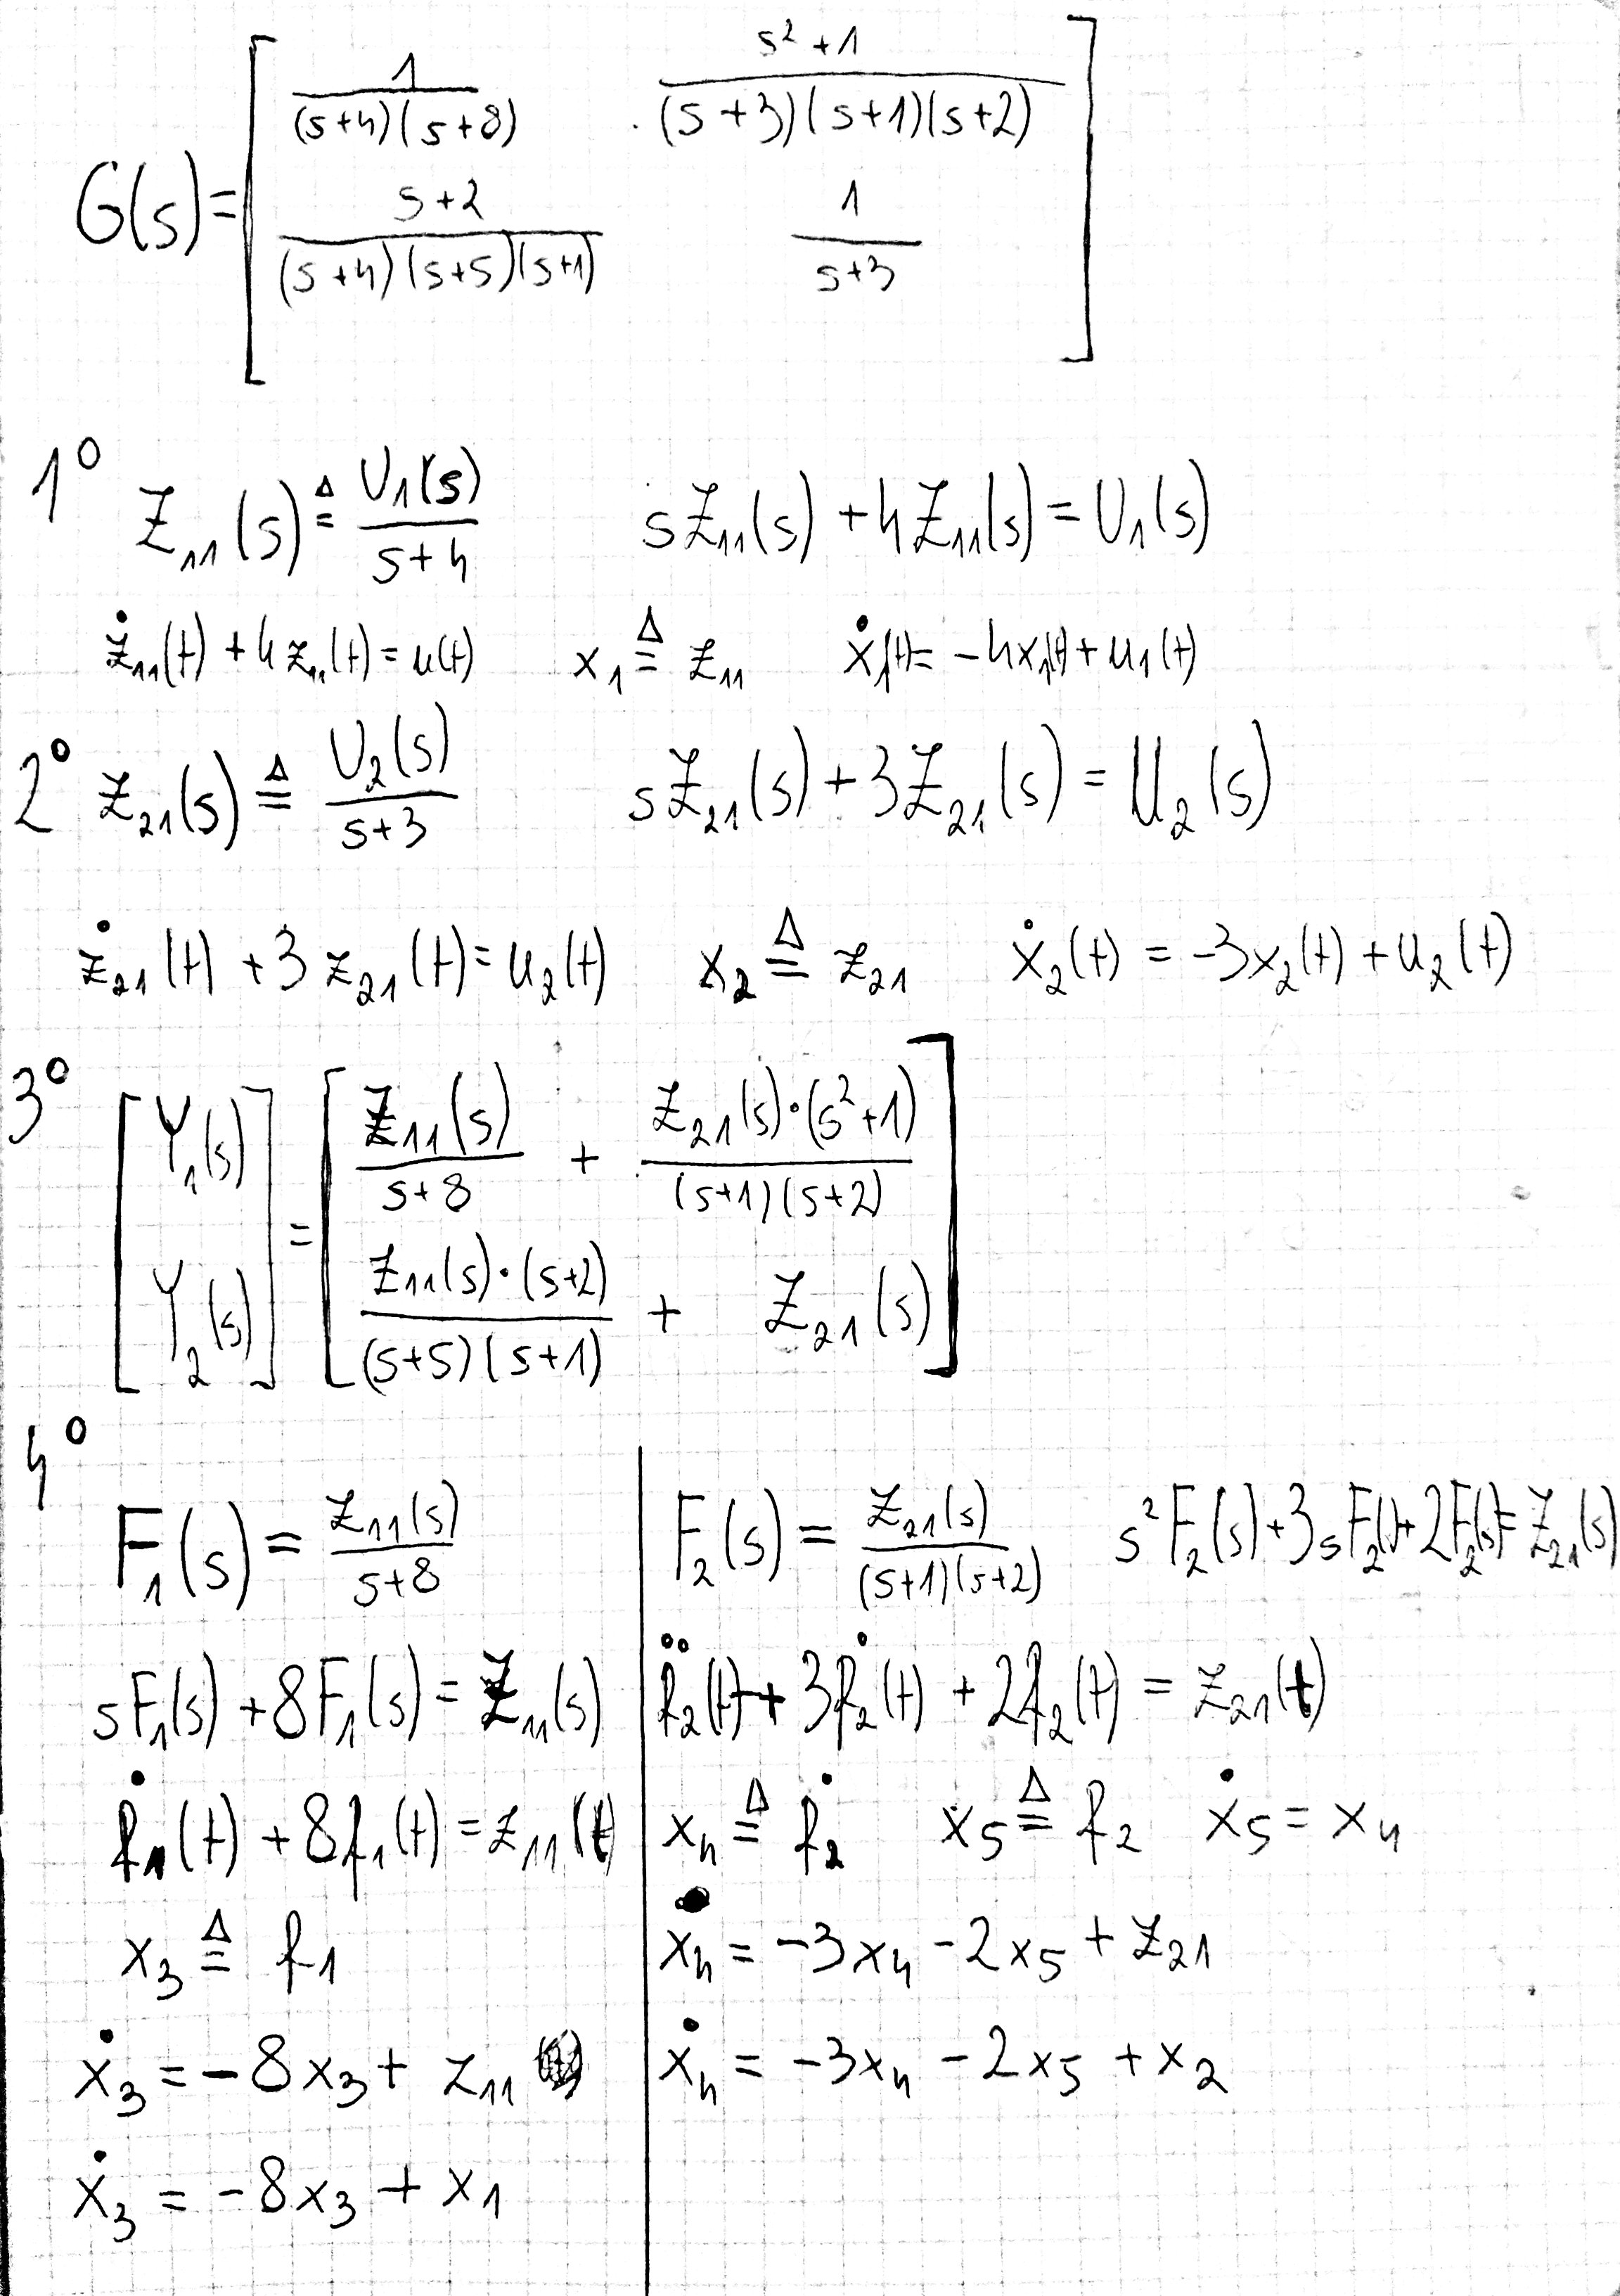 G(s) = [ 1/((s+4)(s+8))   (s²+1)/((s+3)(s+1)(s+2)) ]
[ (s+2)/((s+4)(s+5)(s+1))   1/(s+3) ]
1° Z₁₁(s) ≜ U₁(s)/(s+4)   sZ₁₁(s) + 4Z₁₁(s) = U₁(s)
ż₁₁(t) + 4z₁₁(t) = u(t)   x₁ ≜ z₁₁   ẋ₁(t) = -4x₁(t) + u₁(t)
2° Z₂₁(s) ≜ U₂(s)/(s+3)   sZ₂₁(s) + 3Z₂₁(s) = U₂(s)
ż₂₁(t) + 3z₂₁(t) = u₂(t)   x₂ ≜ z₂₁   ẋ₂(t) = -3x₂(t) + u₂(t)
3° [ Y₁(s) ] = [ Z₁₁(s)/(s+8) + Z₂₁(s)·(s²+1)/((s+1)(s+2)) ]
[ Y₂(s) ]   [ Z₁₁(s)·(s+2)/((s+5)(s+1)) + Z₂₁(s) ]
4°
F₁(s) = Z₁₁(s)/(s+8)
sF₁(s) + 8F₁(s) = Z₁₁(s)
ḟ₁(t) + 8f₁(t) = z₁₁(t)
x₃ ≜ f₁
ẋ₃ = -8x₃ + z₁₁
ẋ₃ = -8x₃ + x₁
F₂(s) = Z₂₁(s)/((s+1)(s+2))   s²F₂(s) + 3sF₂(s) + 2F₂(s) = Z₂₁(s)
f̈₂(t) + 3ḟ₂(t) + 2f₂(t) = z₂₁(t)
x₄ ≜ ḟ₂   x₅ ≜ f₂   ẋ₅ = x₄
ẋ₄ = -3x₄ - 2x₅ + z₂₁
ẋ₄ = -3x₄ - 2x₅ + x₂